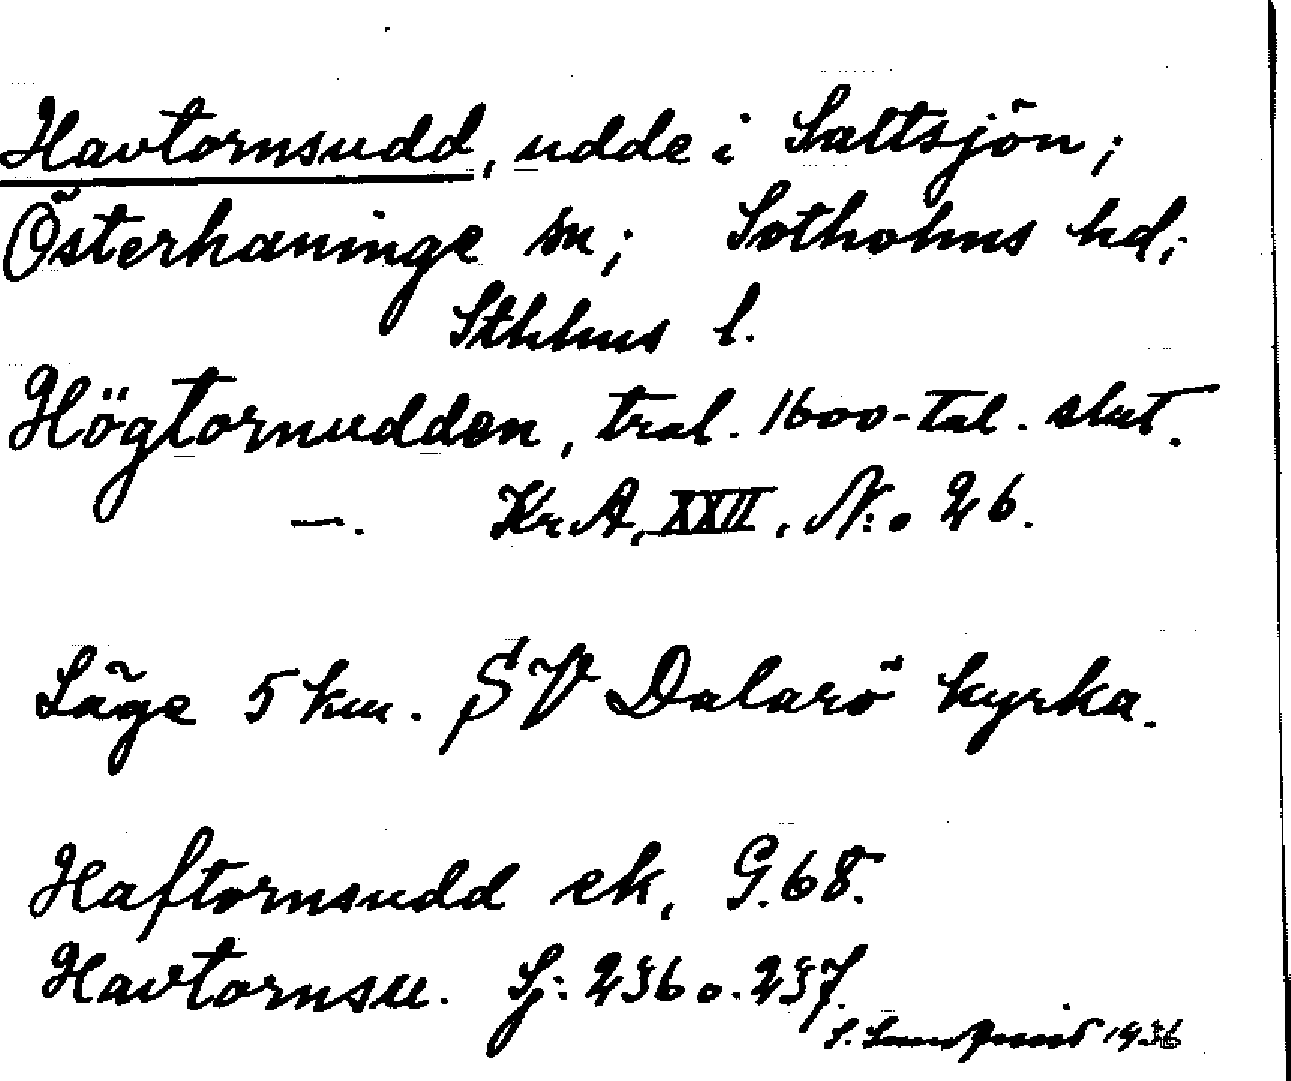 Havtornsudd, udde i Saltsjön;
Österhaninge sn; Sotholms hd;
Sthlms l.
Högtornudden, tral. 1600-tal. slut.
—. Kr.A, XXII, N:o 26.
Läge 5 km. SV Dalarö kyrka.
Haftornsudd ek, G.68.
Havtornsu. Sj: 236 o. 237.
S. 1936